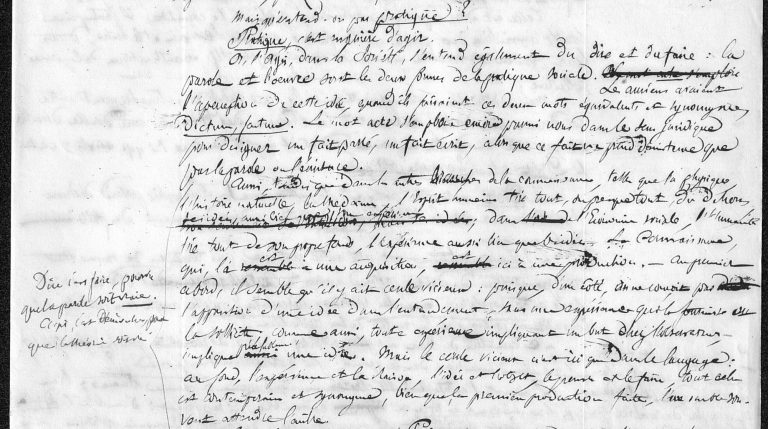 Mais qu'entend-on par pratique ?
Pratique, c'est manière d'agir.
Or, l'agir, dans la Société, s'entend également du dire et du faire : la
parole et l'œuvre sont les deux formes de la pratique sociale.
Les anciens avaient
l'intention de cette idée, quand ils faisaient ces deux mots équivalents et synonymes
Dictum, factum. Le mot acte s'emploie encore parmi nous dans le sens juridique
pour désigner un fait passé, un fait écrit, alors que ce fait ne prend d'existence que
par la parole ou l'écriture.
Ainsi, tandis que dans les autres branches de la connaissance, telle que la physique
l'histoire naturelle, la médecine, l'esprit humain tire tout, ou presque tout, du dehors
dans l'Economie sociale, l'Humanité
tire tout de son propre fond, l'expérience aussi bien que l'idée. La Connaissance,
qui, là est une acquisition, est ici une production. — Au premier
abord, il semble qu'il y ait cercle vicieux : puisque, d'un côté, on ne conçoit pas
l'apparition d'une idée dans l'entendement, sans une expérience qui la
comme aussi, toute expérience impliquant un but chez l'observateur,
implique une idée. Mais le cercle vicieux n'est ici que dans le langage.
au fond, l'expérience et la raison, l'idée et l'objet, le penser et le faire, tout cela
est contemporain et synonyme, bien que la première production faite, l'une
vent attendre l'autre.
Dire c'est faire, pourvu
que la parole soit vraie.
Agir, c'est
que